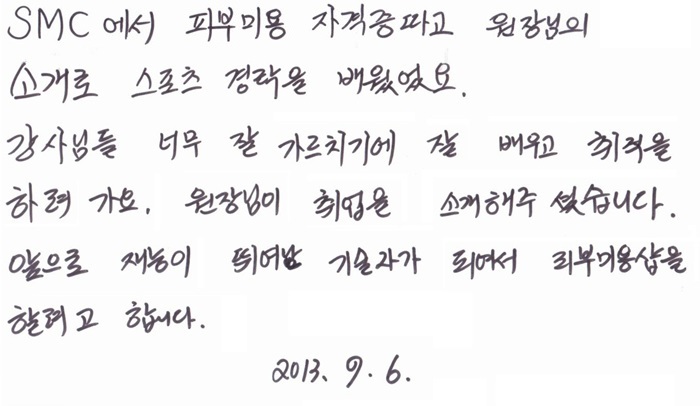 SMC에서 피부미용 자격증따고 원장님의
소개로 스포츠 경락을 배웠었요.
강사님들 너무 잘 가르치기에 잘 배우고 취직을
하려 가요. 원장님이 취업을 소개해주셨습니다.
앞으로 재능이 뛰어난 기술자가 되어서 피부미용샵을
할려고 합니다.
2013. 9. 6.